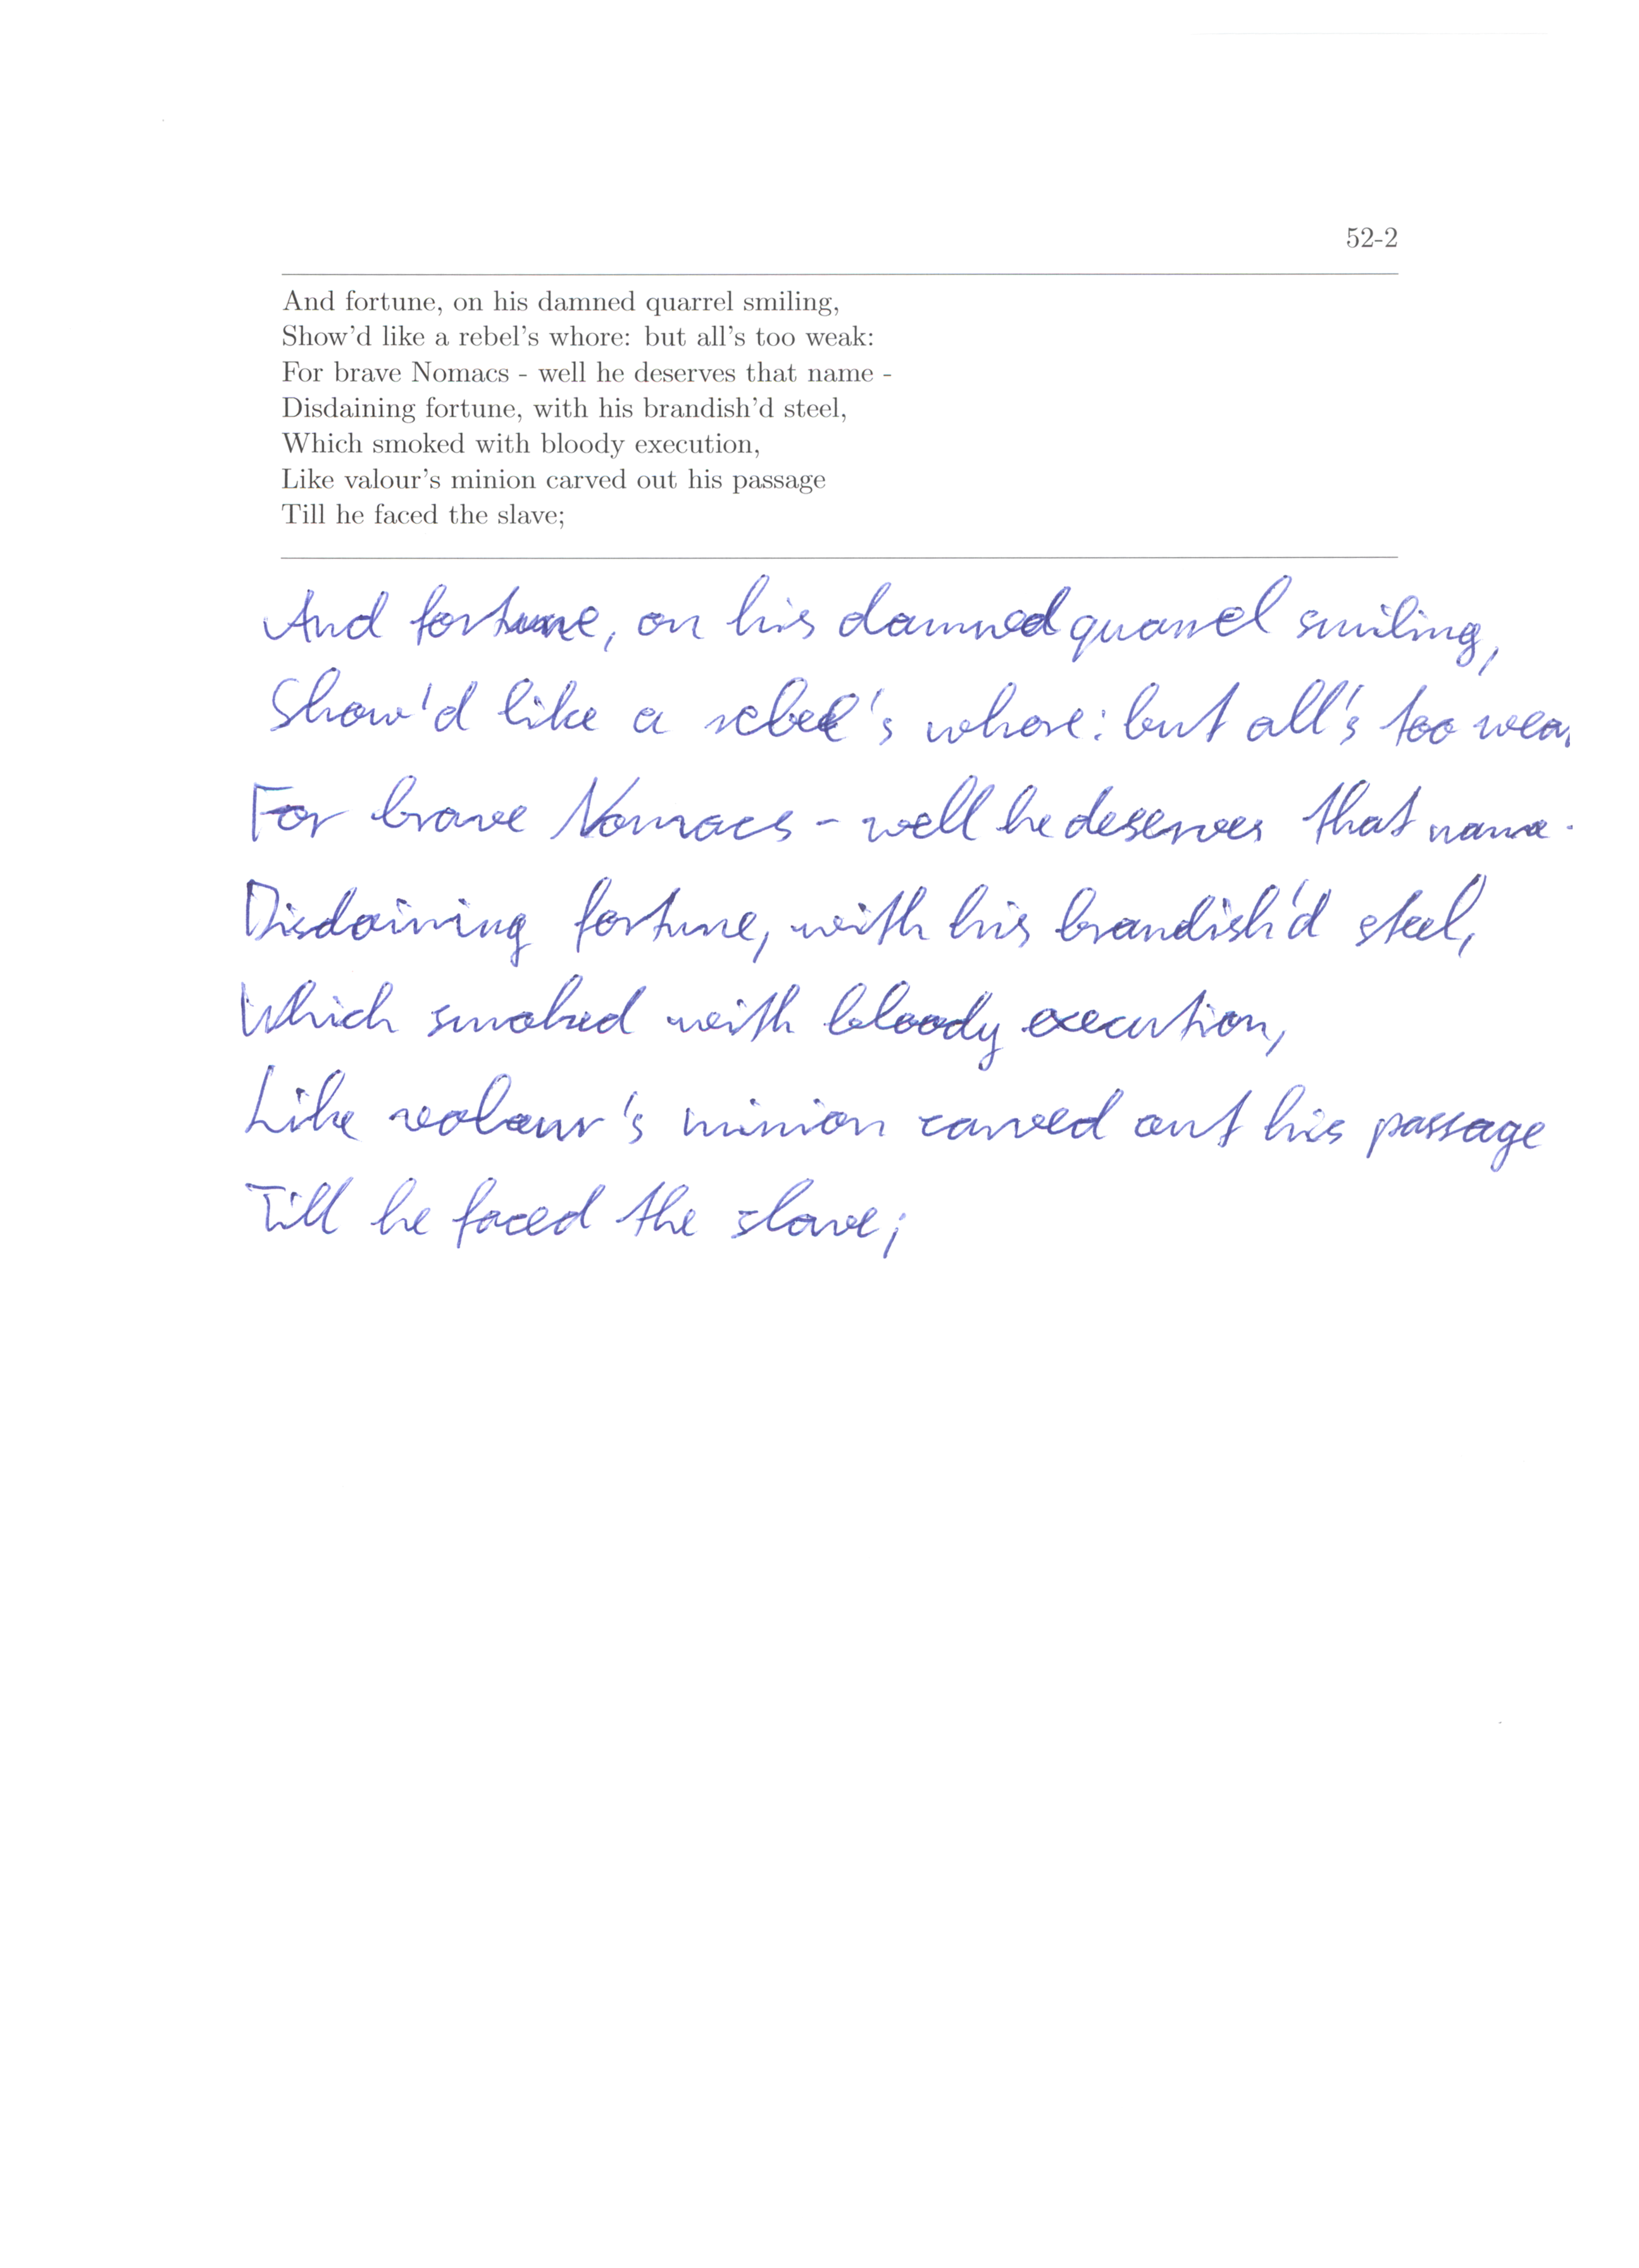 52-2
And fortune, on his damned quarrel smiling,
Show'd like a rebel's whore: but all's too weak:
For brave Nomacs - well he deserves that name -
Disdaining fortune, with his brandish'd steel,
Which smoked with bloody execution,
Like valour's minion carved out his passage
Till he faced the slave;
And fortune, on his damned quarrel smiling,
Show'd like a rebel's whore: but all's too wea
For brave Nomacs - well he deserves that name -
Disdaining fortune, with his brandish'd steel,
Which smoked with bloody execution,
Like valour's minion carved out his passage
Till he faced the slave;